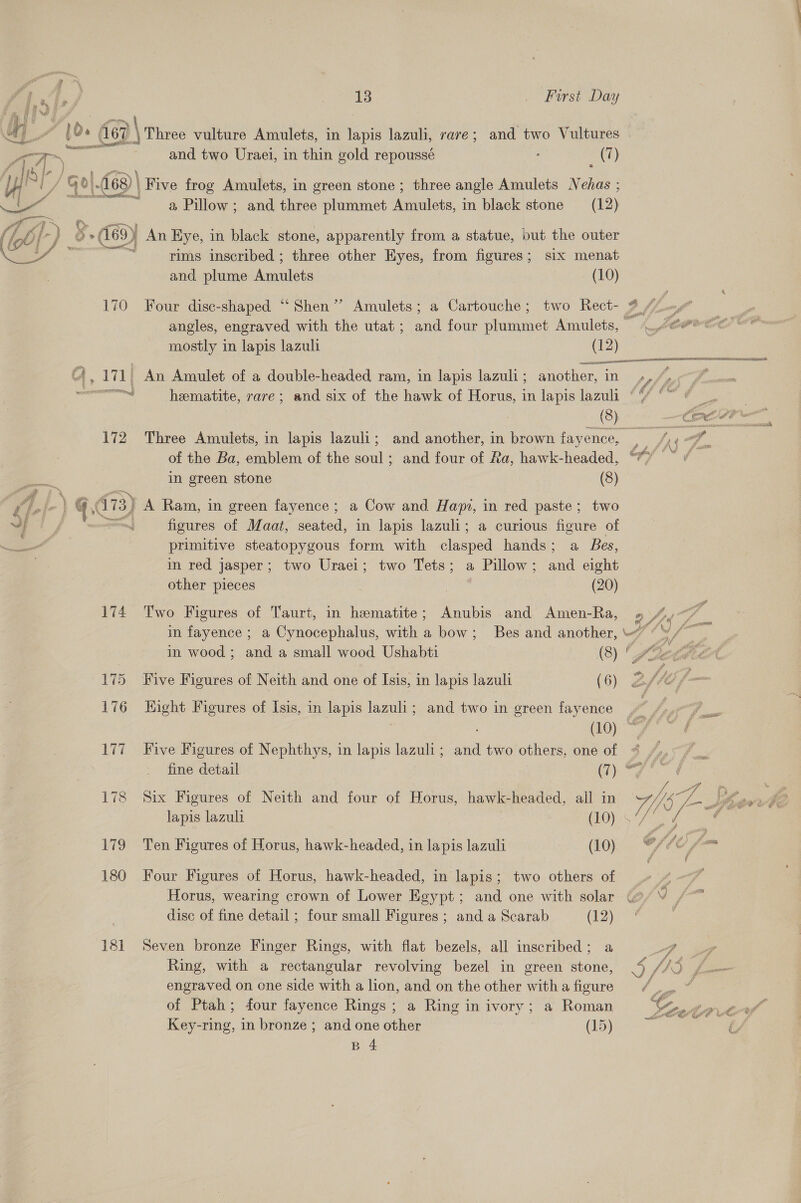 13 First Day
167 Three vulture Amulets, in lapis lazuli, rare; and two Vultures
and two Uraei, in thin gold repoussé (7)
168 Five frog Amulets, in green stone; three angle Amulets Nehas;
a Pillow; and three plummet Amulets, in black stone (12)
169 An Eye, in black stone, apparently from a statue, but the outer
rims inscribed; three other Eyes, from figures; six menat
and plume Amulets (10)
170 Four disc-shaped “Shen” Amulets; a Cartouche; two Rect-
angles, engraved with the utat; and four plummet Amulets,
mostly in lapis lazuli (12)
171 An Amulet of a double-headed ram, in lapis lazuli; another, in
hæmatite, rare; and six of the hawk of Horus, in lapis lazuli
(8)
172 Three Amulets, in lapis lazuli; and another, in brown fayence,
of the Ba, emblem of the soul; and four of Ra, hawk-headed,
in green stone (8)
173 A Ram, in green fayence; a Cow and Hapi, in red paste; two
figures of Maat, seated, in lapis lazuli; a curious figure of
primitive steatopygous form with clasped hands; a Bes,
in red jasper; two Uraei; two Tets; a Pillow; and eight
other pieces (20)
174 Two Figures of Taurt, in hæmatite; Anubis and Amen-Ra,
in fayence; a Cynocephalus, with a bow; Bes and another,
in wood; and a small wood Ushabti (8)
175 Five Figures of Neith and one of Isis, in lapis lazuli (6)
176 Eight Figures of Isis, in lapis lazuli; and two in green fayence
(10)
177 Five Figures of Nephthys, in lapis lazuli; and two others, one of
fine detail (7)
178 Six Figures of Neith and four of Horus, hawk-headed, all in
lapis lazuli (10)
179 Ten Figures of Horus, hawk-headed, in lapis lazuli (10)
180 Four Figures of Horus, hawk-headed, in lapis; two others of
Horus, wearing crown of Lower Egypt; and one with solar
disc of fine detail; four small Figures; and a Scarab (12)
181 Seven bronze Finger Rings, with flat bezels, all inscribed; a
Ring, with a rectangular revolving bezel in green stone,
engraved on one side with a lion, and on the other with a figure
of Ptah; four fayence Rings; a Ring in ivory; a Roman
Key-ring, in bronze; and one other (15)
B 4